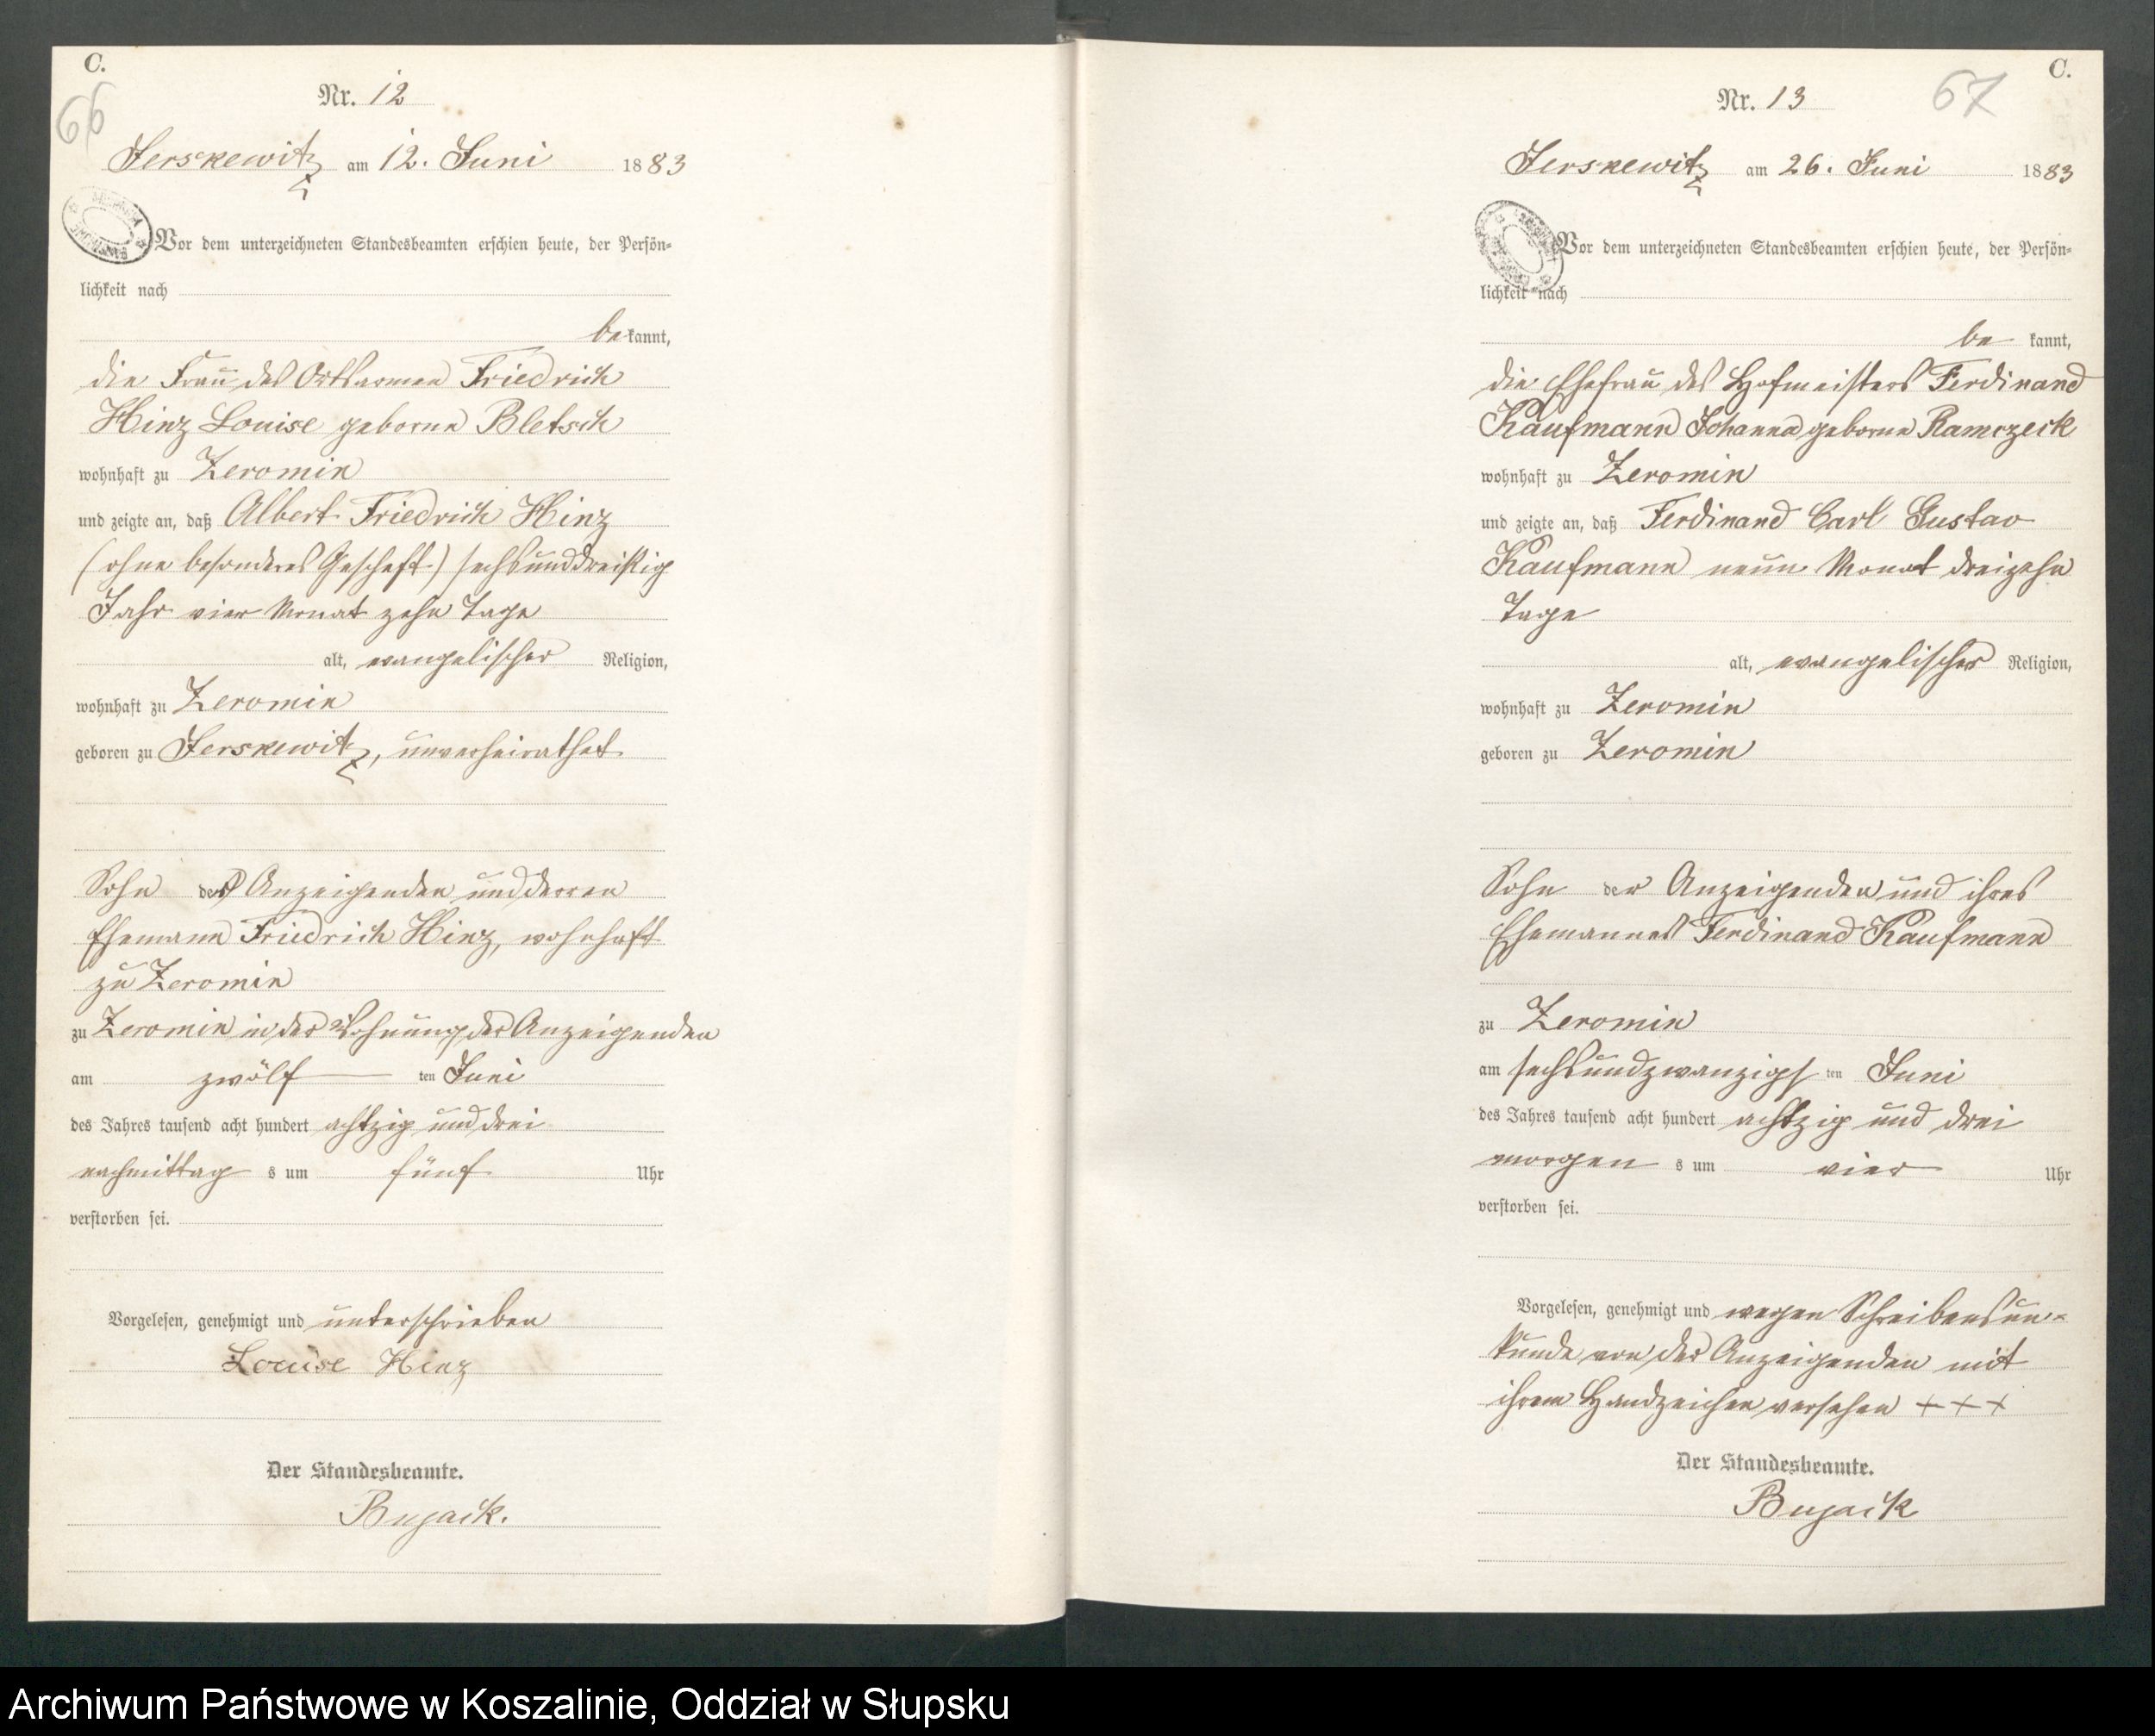 C.
66
Nr. 12
Jerskewitz am 12. Juni 1883
Vor dem unterzeichneten Standesbeamten erschien heute, der Persön-
lichkeit nach
bekannt,
die Frau des Ortsarmen Friedrich
Hinz Louise geborne Bletsch
wohnhaft zu Zeromin
und zeigte an, daß Albert Friedrich Hinz
(ohne besonderes Geschäft) sechsunddreißig
Jahr vier Monat zehn Tage
alt, evangelischer Religion,
wohnhaft zu Zeromin
geboren zu Jerskewitz, unverheirathet
Sohn der Anzeigenden und deren
Ehemann Friedrich Hinz, wohnhaft
zu Zeromin
zu Zeromin in der Wohnung der Anzeigenden
am zwölf ten Juni
des Jahres tausend acht hundert achtzig und drei
nachmittag s um fünf Uhr
verstorben sei.
Vorgelesen, genehmigt und unterschrieben
Louise Hinz
Der Standesbeamte.
Bujack.
C.
67
Nr. 13
Jerskewitz am 26. Juni 1883
Vor dem unterzeichneten Standesbeamten erschien heute, der Persön-
lichkeit nach
be kannt,
die Ehefrau des Hofmeisters Ferdinand
Kaufmann Johanna geborne Ramczeck
wohnhaft zu Zeromin
und zeigte an, daß Ferdinand Carl Gustav
Kaufmann neun Monat dreizehn
Tage
alt, evangelischer Religion,
wohnhaft zu Zeromin
geboren zu Zeromin
Sohn der Anzeigenden und ihres
Ehemannes Ferdinand Kaufmann
zu Zeromin
am sechsundzwanzigs ten Juni
des Jahres tausend acht hundert achtzig und drei
morgen s um vier Uhr
verstorben sei.
Vorgelesen, genehmigt und wegen Schreibensun-
kunde von der Anzeigenden mit
ihrem Handzeichen versehen +++
Der Standesbeamte.
Bujack
Archiwum Państwowe w Koszalinie, Oddział w Słupsku